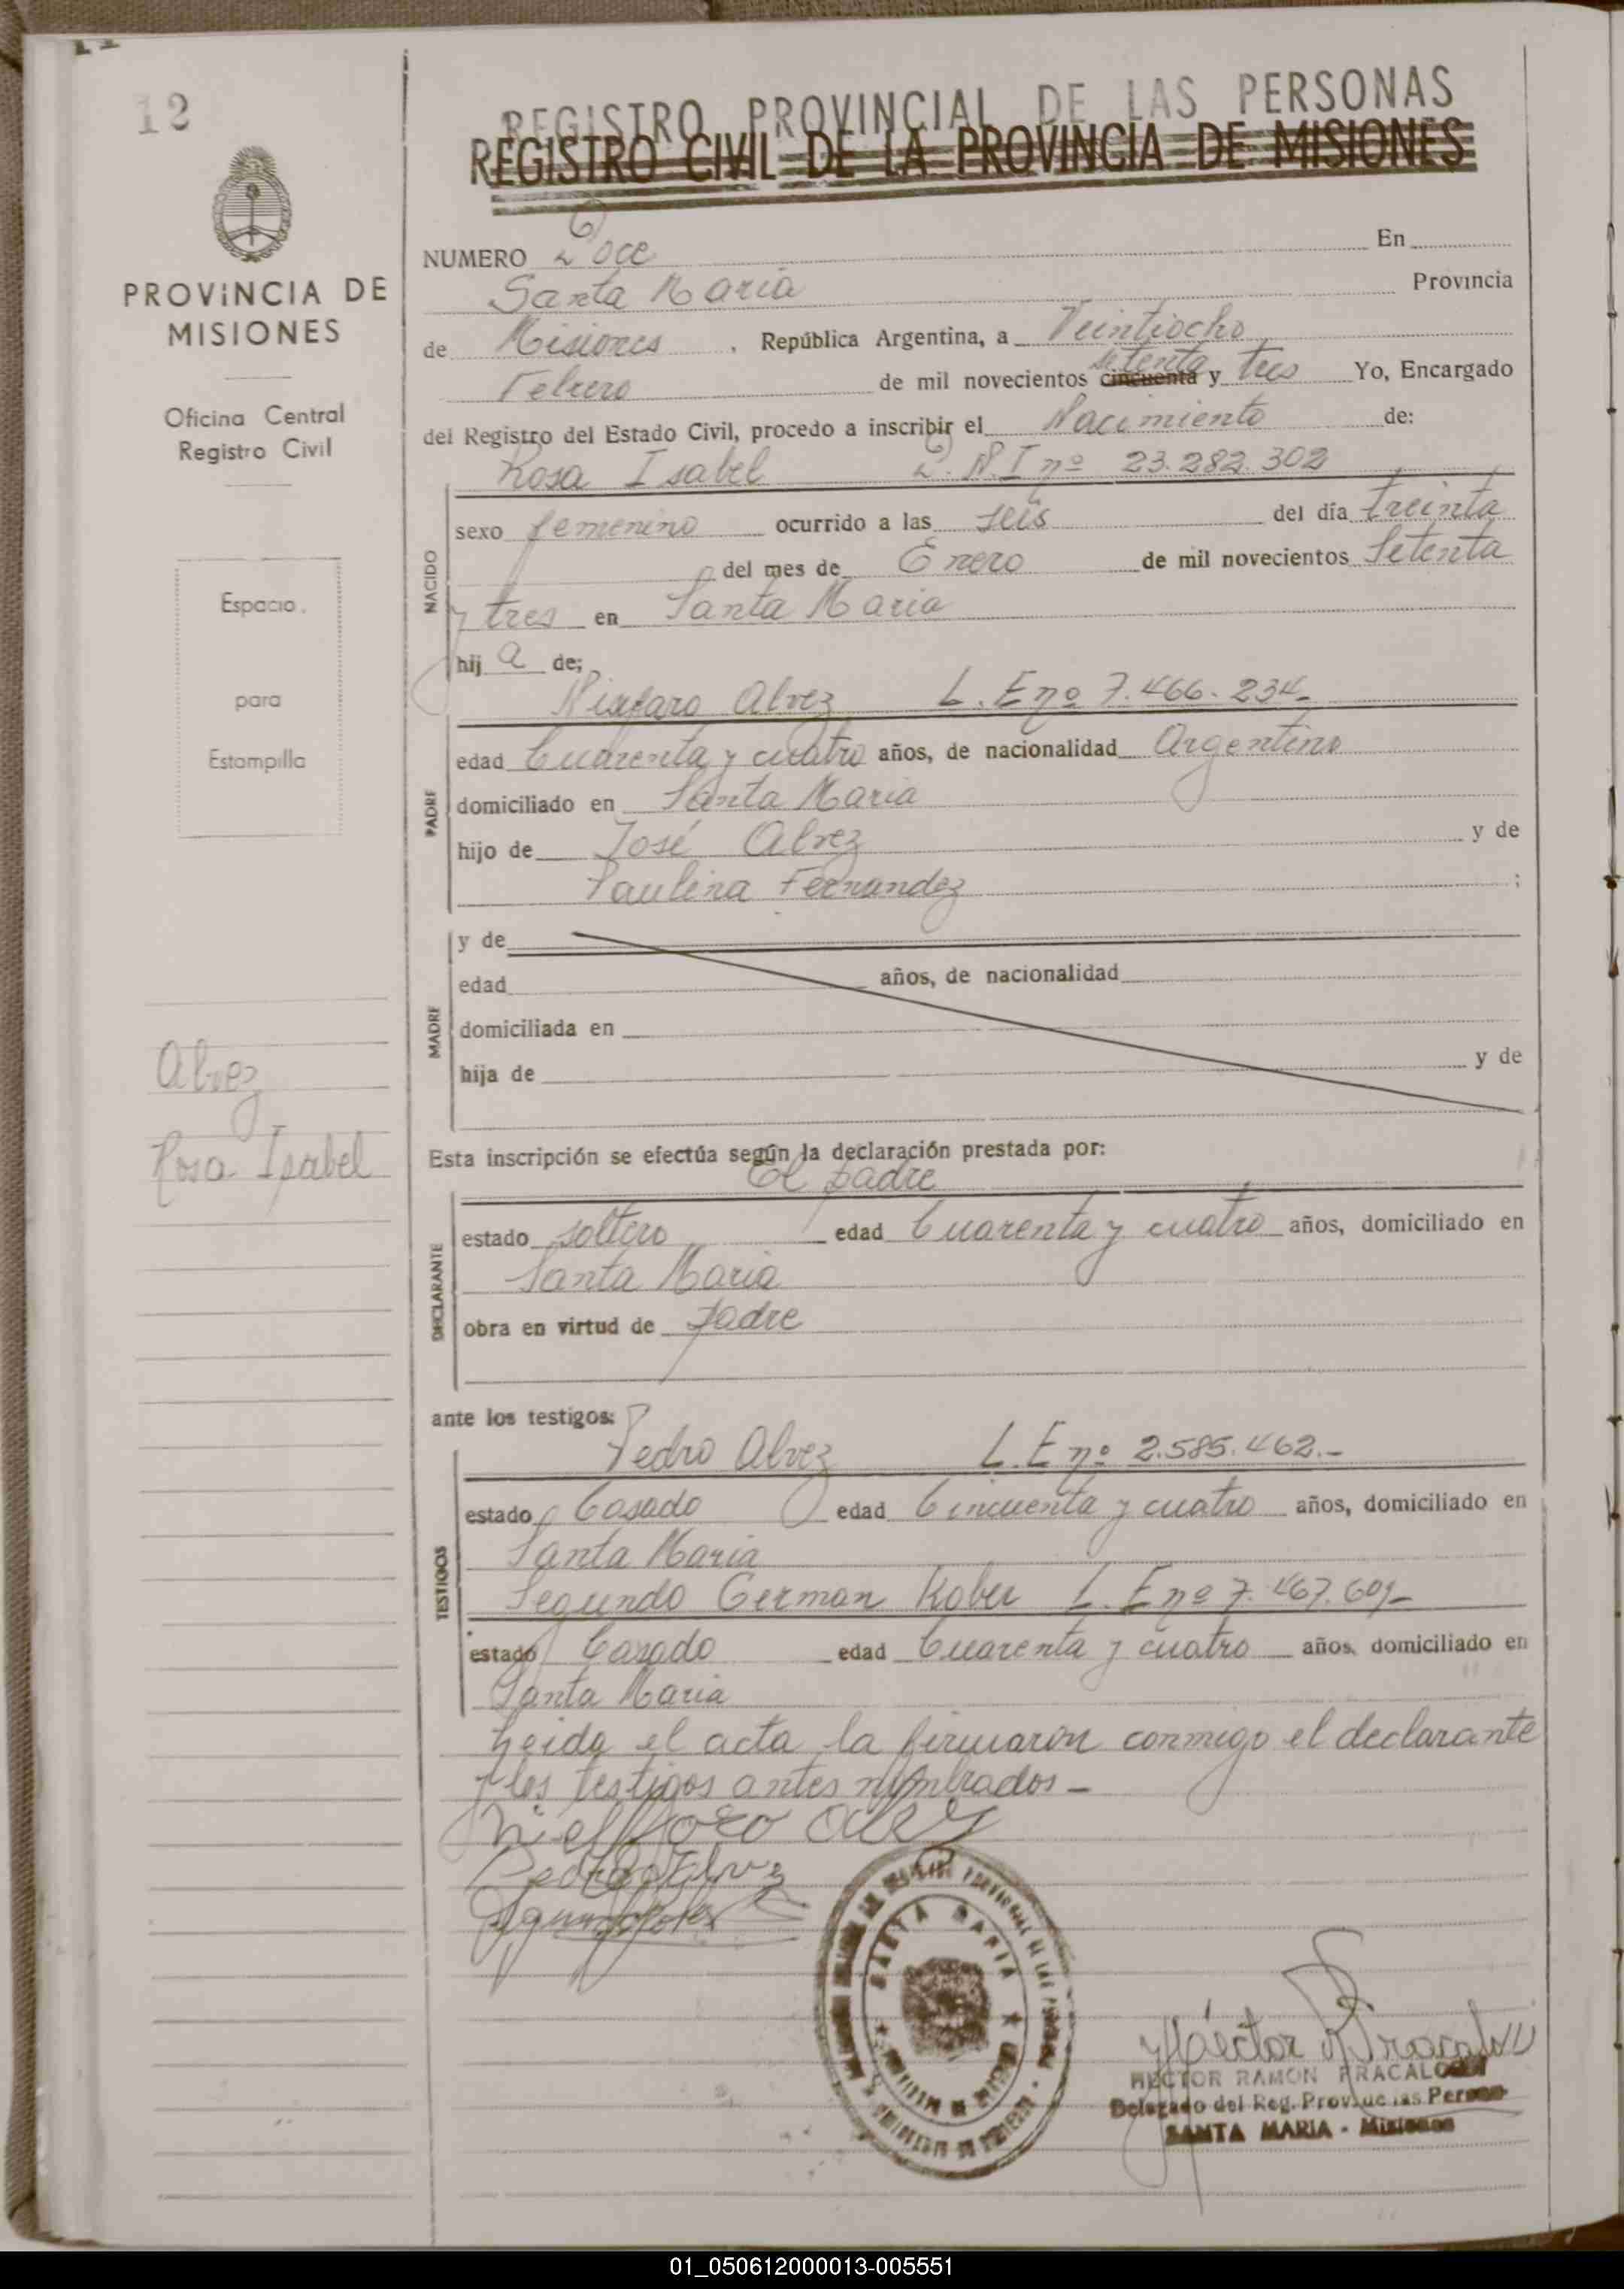 12
PROVINCIA DE
MISIONES
Oficina Central
Registro Civil
Espacio
para
Estampilla
Alvez
Rosa Isabel
REGISTRO PROVINCIAL DE LAS PERSONAS
REGISTRO CIVIL DE LA PROVINCIA DE MISIONES
NUMERO Doce En
Santa Maria Provincia
de Misiones, República Argentina, a Veintiocho
Febrero de mil novecientos cincuenta setenta y tres Yo, Encargado
del Registro del Estado Civil, procedo a inscribir el Nacimiento de:
Rosa Isabel D.N.I nº 23.282.302
NACIDO
sexo femenino ocurrido a las seis del día treinta
del mes de Enero de mil novecientos Setenta
y tres en Santa Maria
hij a de;
Alvez L.E nº 7.466.234-
PADRE
edad Cuarenta y cuatro años, de nacionalidad Argentino
domiciliado en Santa Maria
hijo de José Alvez y de
Paulina Fernandez ;
MADRE
y de
edad años, de nacionalidad
domiciliada en
hija de y de
Esta inscripción se efectúa según la declaración prestada por:
El padre
DECLARANTE
estado soltero edad Cuarenta y cuatro años, domiciliado en
Santa Maria
obra en virtud de padre
ante los testigos:
Pedro Alvez L.E nº 2.585.462.-
TESTIGOS
estado Casado edad Cincuenta y cuatro años, domiciliado en
Santa Maria
Segundo German Kober L.E nº 7.467.601-
estado Casado edad Cuarenta y cuatro años, domiciliado en
Santa Maria
Leida el acta la firmaron conmigo el declarante
y los testigos antes nombrados-
Pedro Alvez
SANTA MARIA
HECTOR RAMON
Delegado del Reg. Prov. de las Person
SANTA MARIA - Misiones
01_050612000013-005551